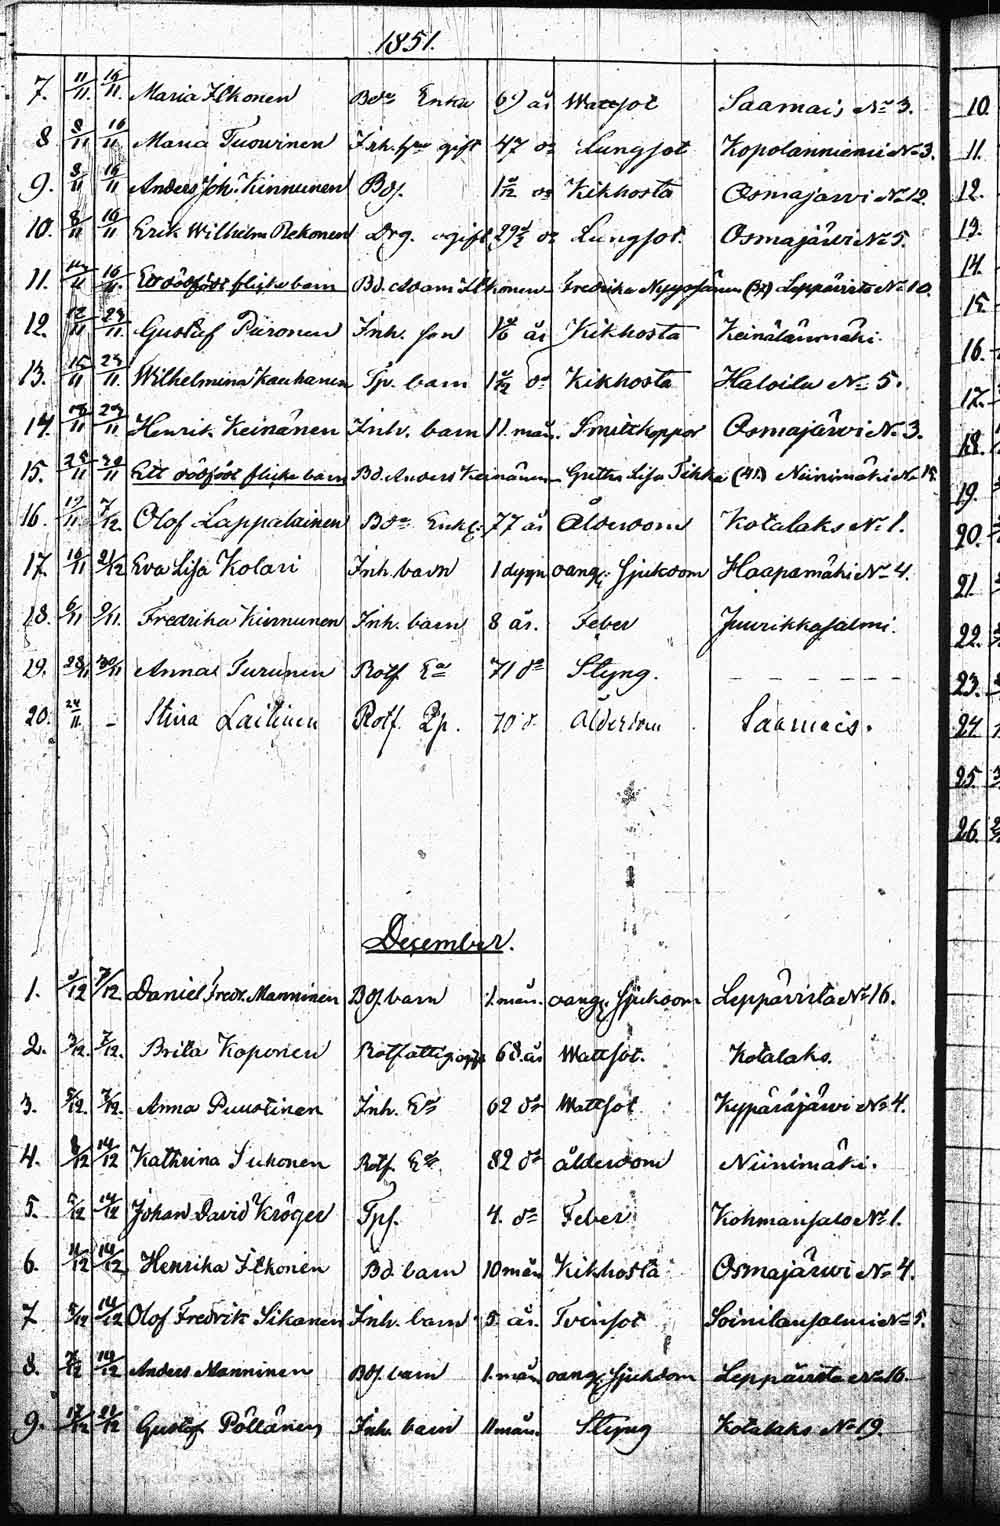 1851.
7. 11/11. 16/11. Maria Ilkonen Bde Enka 6 år Wattsot Saamais No 3.
8. 8/11 16/11 Maria Tuovinen Inh. hru gift 47 do Lungsot Kopolanniemi No 3.
9. 8/11 16/11 Anders Joh. Kinnunen Bdf. 1 do Kikhosta Osmajärvi No 12.
10. 8/11 16/11 Erik Wilhelm Rekonen Drg. ogift 29 do Lungsot. Osmajärvi No 5.
11. 16/11. Ett dödfödt flicke barn Bd. Adam Ilkonen Fredrika Nyyssönen (32) Leppävirta No 10.
12. 12/11 23/11. Gustaf Piironen Inh. son år Kikhosta Keinälänmäki.
13. 15/11 23/11. Wilhelmina Kauhanen Tp. barn do Kikhosta Haloila No 5.
14. 23/11 Henrik Keinänen Inh. barn 11. mån. Smitkoppor Osmajärvi No 3.
15. 25/11 Ett dödfödt flicke barn Bd. Anders Keinänen Gretha Lisa Tikka (41) Niinimäki No 15.
16. 17/11 7/12 Olof Lappalainen Bde Enkl. 77 år Ålderdom Kotalaks No 1.
17. 16/11 21/12 Eva Lisa Kolari Inh. barn 1 dygn oang. sjukdom Haapamäki No 4.
18. 6/11 9/11. Fredrika Kinnunen Inh. barn 8 år. Feber Juurikkasalmi.
19. 23/11 30/11 Anna Turunen Rotf. Ea 71 do Styng. - - - - - -
20. 24/11 - Stina Laitinen Rotf. Pp. 70 d. Ålderdom Saamais.
December.
1. 3/12 7/12 Daniel Fredr. Manninen Bdf. barn 1. mån. oang. sjukdom Leppävirta No 16.
2. 3/12. 7/12. Brita Koponen Rotfattig 68. år Wattsot. Kotalaks.
3. 5/12. 7/12. Anna Puustinen Inh. Ea 62 do Wattsot Kypäräjärvi No 4.
4. 8/12 14/12 Kathrina Sikonen Rotf. Ea. 82 do ålderdom Niinimäki.
5. 5/12 14/12 Johan David Kröger Tpf. 4. do Feber Kohmansalo No 1.
6. 11/12 14/12 Henrika Ilkonen Bd barn 10 mån Kikhosta Osmajärvi No 4.
7 5/12 14/12 Olof Fredrik Sikanen Inh. barn 5. år. Tvinsot Soinilansalmi No 5.
8. 7/12 14/12 Anders Manninen Bdf. barn 1. mån oang. sjukdom Leppävirta No 16.
9. 17/12 21/12 Gustaf Pöllänen Inh. barn 11 mån. Styng Kotalaks No 19.
10.
11.
12.
13.
14.
15
16.
17.
18.
19.
20.
21
22.
23.
24
25.
26.